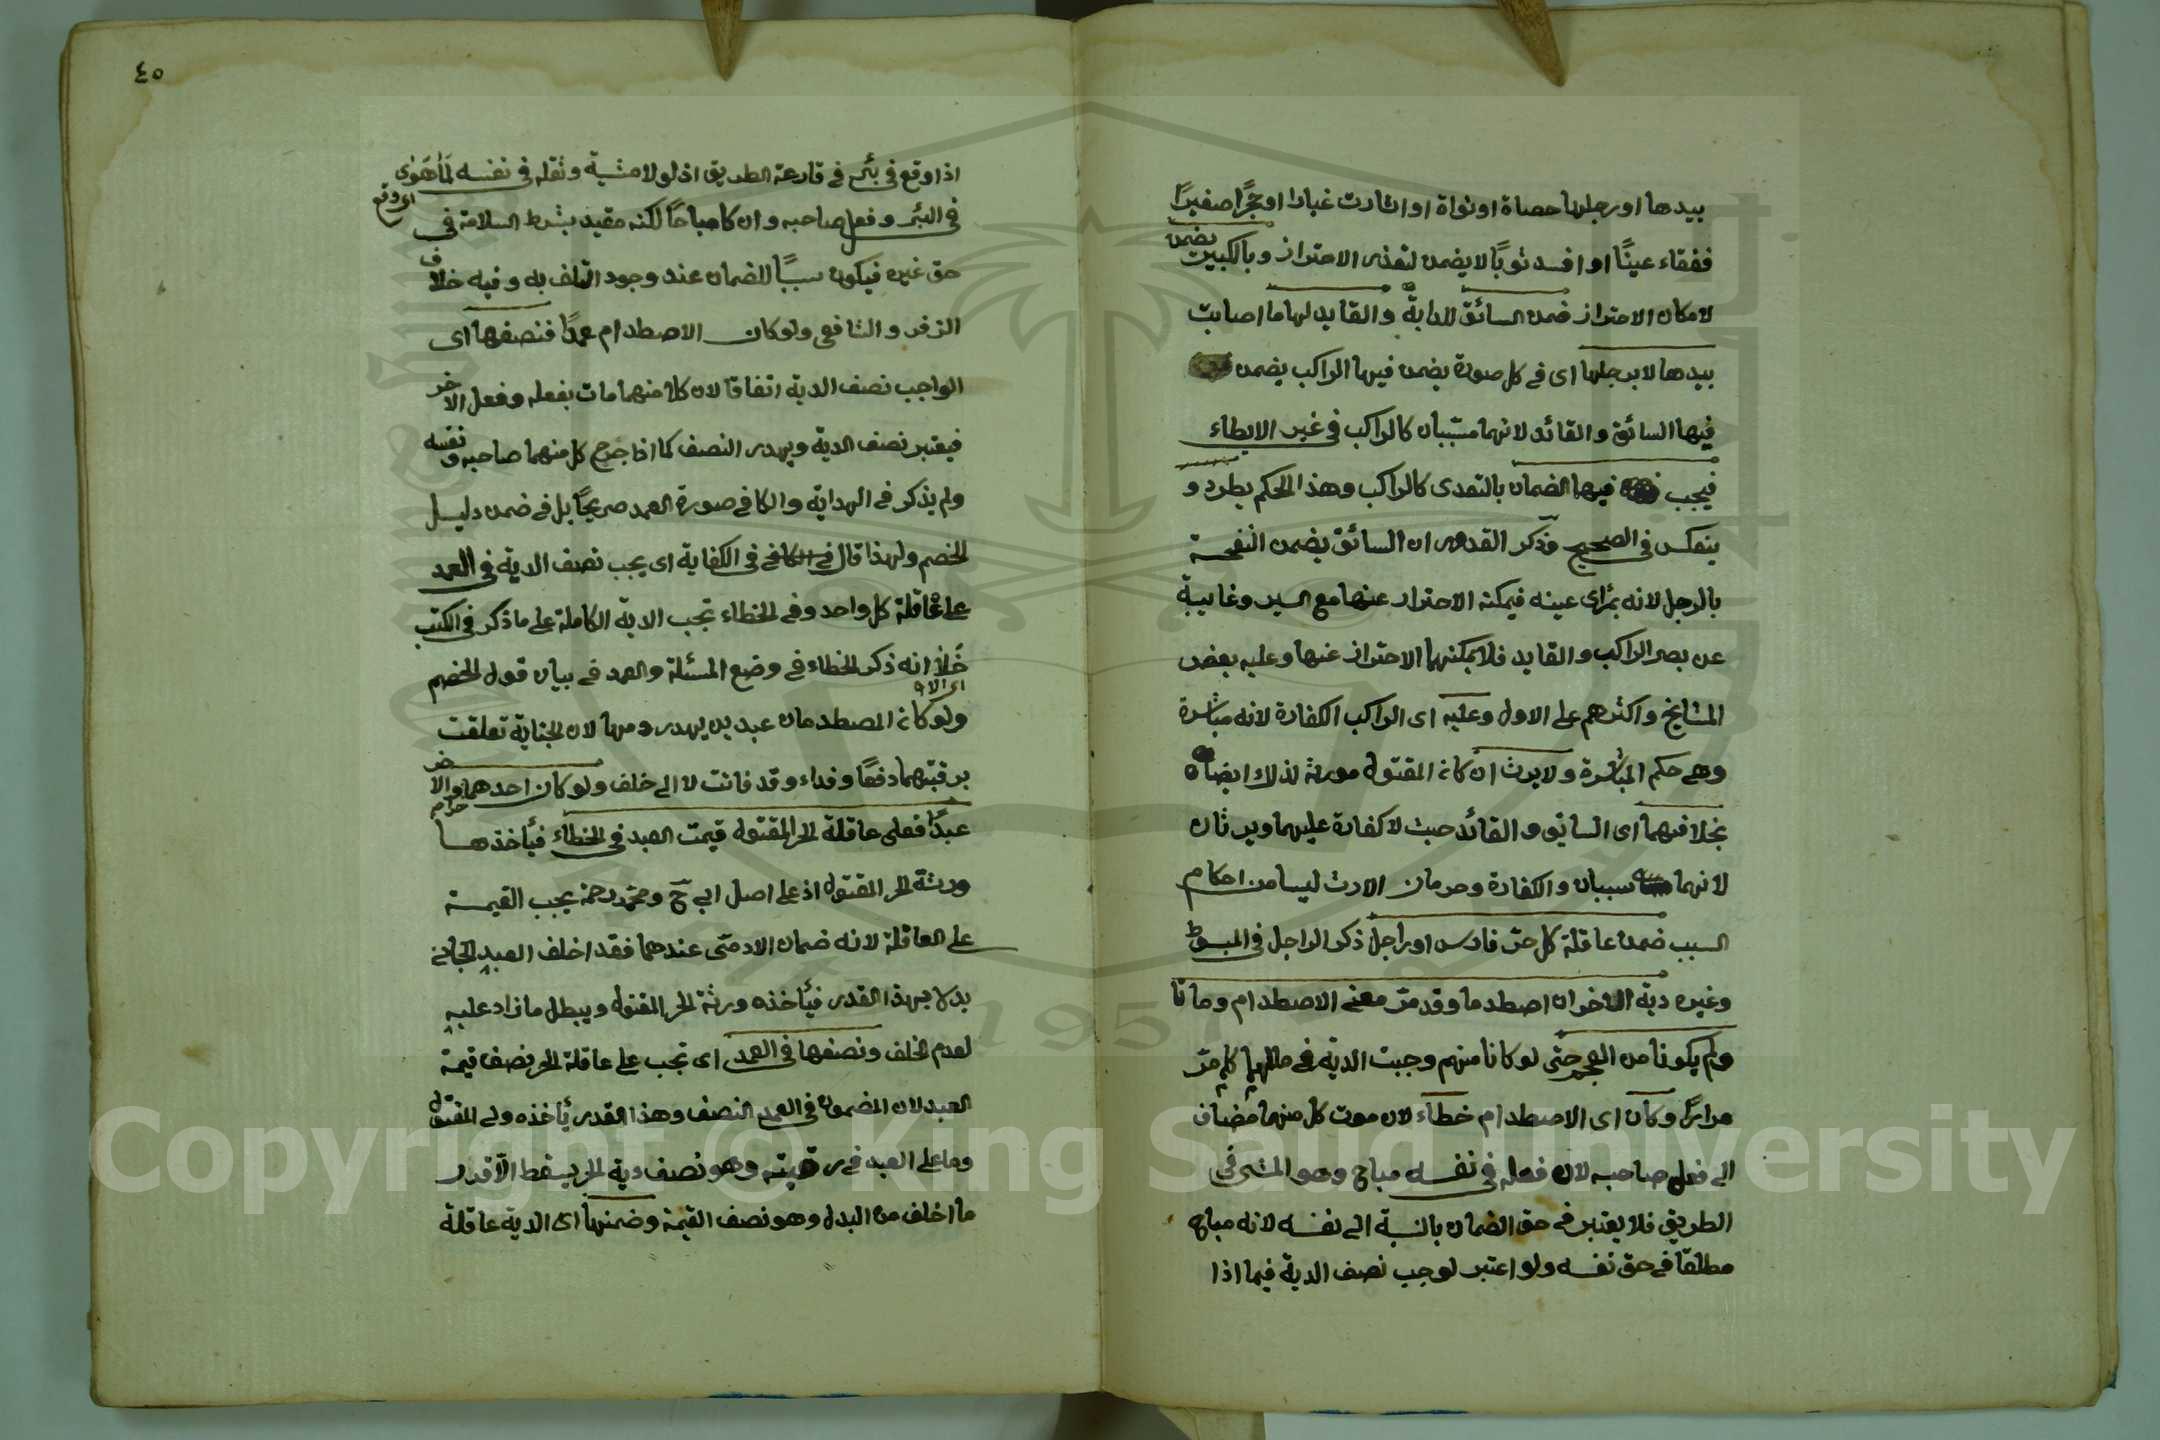 بيدها او رجلها حصاة او نواة او اثارت غبارا او حجرًا صغيرًا
ففقاء عينًا او افسد ثوبًا لا يضمن لتعذر الاحتراز وبالكبير يضمن
لامكان الاحتراز ضمن السائق للدابة والقايد لها ما اصابت
بيدها لا برجلها اى في كل صورة يضمن فيها الراكب يضمن
فيها السائق والقائد لانهما مسببان كالراكب في غير الايطاء
فيجب فيها الضمان بالتعدى كالراكب وهذا الحكم يطرد و
ينعكس في الصحيح وذكر القدورى ان السائق يضمن النفحة
بالرجل لانه بمرأى عينه فيمكنه الاحتراز عنها مع السير وغايبة
عن بصر الراكب والقايد فلا يمكنهما الاحتراز عنها وعليه بعض
المشايخ واكثرهم على الاول وعليه اى الراكب الكفارة لانه مباشرة
وهى حكم المباشرة ولا يرث ان كان المقتول مورثه لذلك ايضا
بخلافهما اى السائق والقائد حيث لا كفارة عليهما ويرثان
لانهما سببان والكفارة وحرمان الارث ليسا من احكام
السبب ضمن عاقلة كل حر فارس او راجل ذكر الراجل في المبسوط
وغيره دية الاخر ان اصطدما وقد مر معنى الاصطدام وماتا
ولم يكونا من العجم حتى لو كانا منهم وجبت الدية في مالهما كما مر
مرارًا وكان اى الاصطدام خطاء لان موت كل منهما مضاف
الى فعل صاحبه لان فعله في نفسه مباح وهو المشى في
الطريق فلا يعتبر في حق الضمان بالنسبة الى نفسه لانه مباح
مطلقا في حق نفسه ولو اعتبر لوجب نصف الدية فيما اذا
٤٥
اذا وقع في بئر في قارعة الطريق اذ لولا مشيه وثقله في نفسه لما هوى
اى وقع
في البئر وفعل صاحبه وان كان مباحا لكنه مقيد بشرط السلامة في
حق غيره فيكون سببًا للضمان عند وجود التلف به وفيه خلاف
الزفر والشافعى ولو كان الاصطدام عمدًا فنصفها اى
الواجب نصف الدية اتفاقا لان كلا منهما مات بفعله وفعل الاخر
فيعتبر نصف الدية ويهدر النصف كما اذا جرح كل منهما صاحبه ونفسه
ولم يذكر في الهداية والكافي صورة العمد صريحًا بل في ضمن دليل
الخصم ولهذا قال في الكفاية اى يجب نصف الدية في العمد
على عاقلة كل واحد وفي الخطاء تجب الدية الكاملة على ما ذكر في الكتب
خلا انه ذكر الخطاء في وضع المسئلة والعمد في بيان قول الخصم
ولو كان المصطدمان عبدين يهدر دمها لان الجناية تعلقت
برقبتهما دفعًا وفداء وقد فاتت لا الى خلف ولو كان احدهما والاخر
عبدًا فعلى عاقلة الحر المقتول قيمت العبد في الخطاء فيأخذها
ورثة الحر المقتول اذ على اصل ابى ح ومحمد رحمه يجب القيمة
على العاقلة لانه ضمان الادمى عندهما فقد اخلف العبد الجانى
بدلا بهذا القدر فيأخذه ورثة الحر المقتول ويبطل ما زاد عليه
لعدم الخلف ونصفها في العمد اى تجب على عاقلة الحر نصف قيمة
العبد لان المضمون في العمد النصف وهذا القدر يأخذه ولى المقتول
وما على العبد في رقبته وهو نصف دية الحر يسقط الا قدر
ما اخلف من البدل وهو نصف القيمة وضمنها اى الدية عاقلة
Copyright © King Saud University
1957